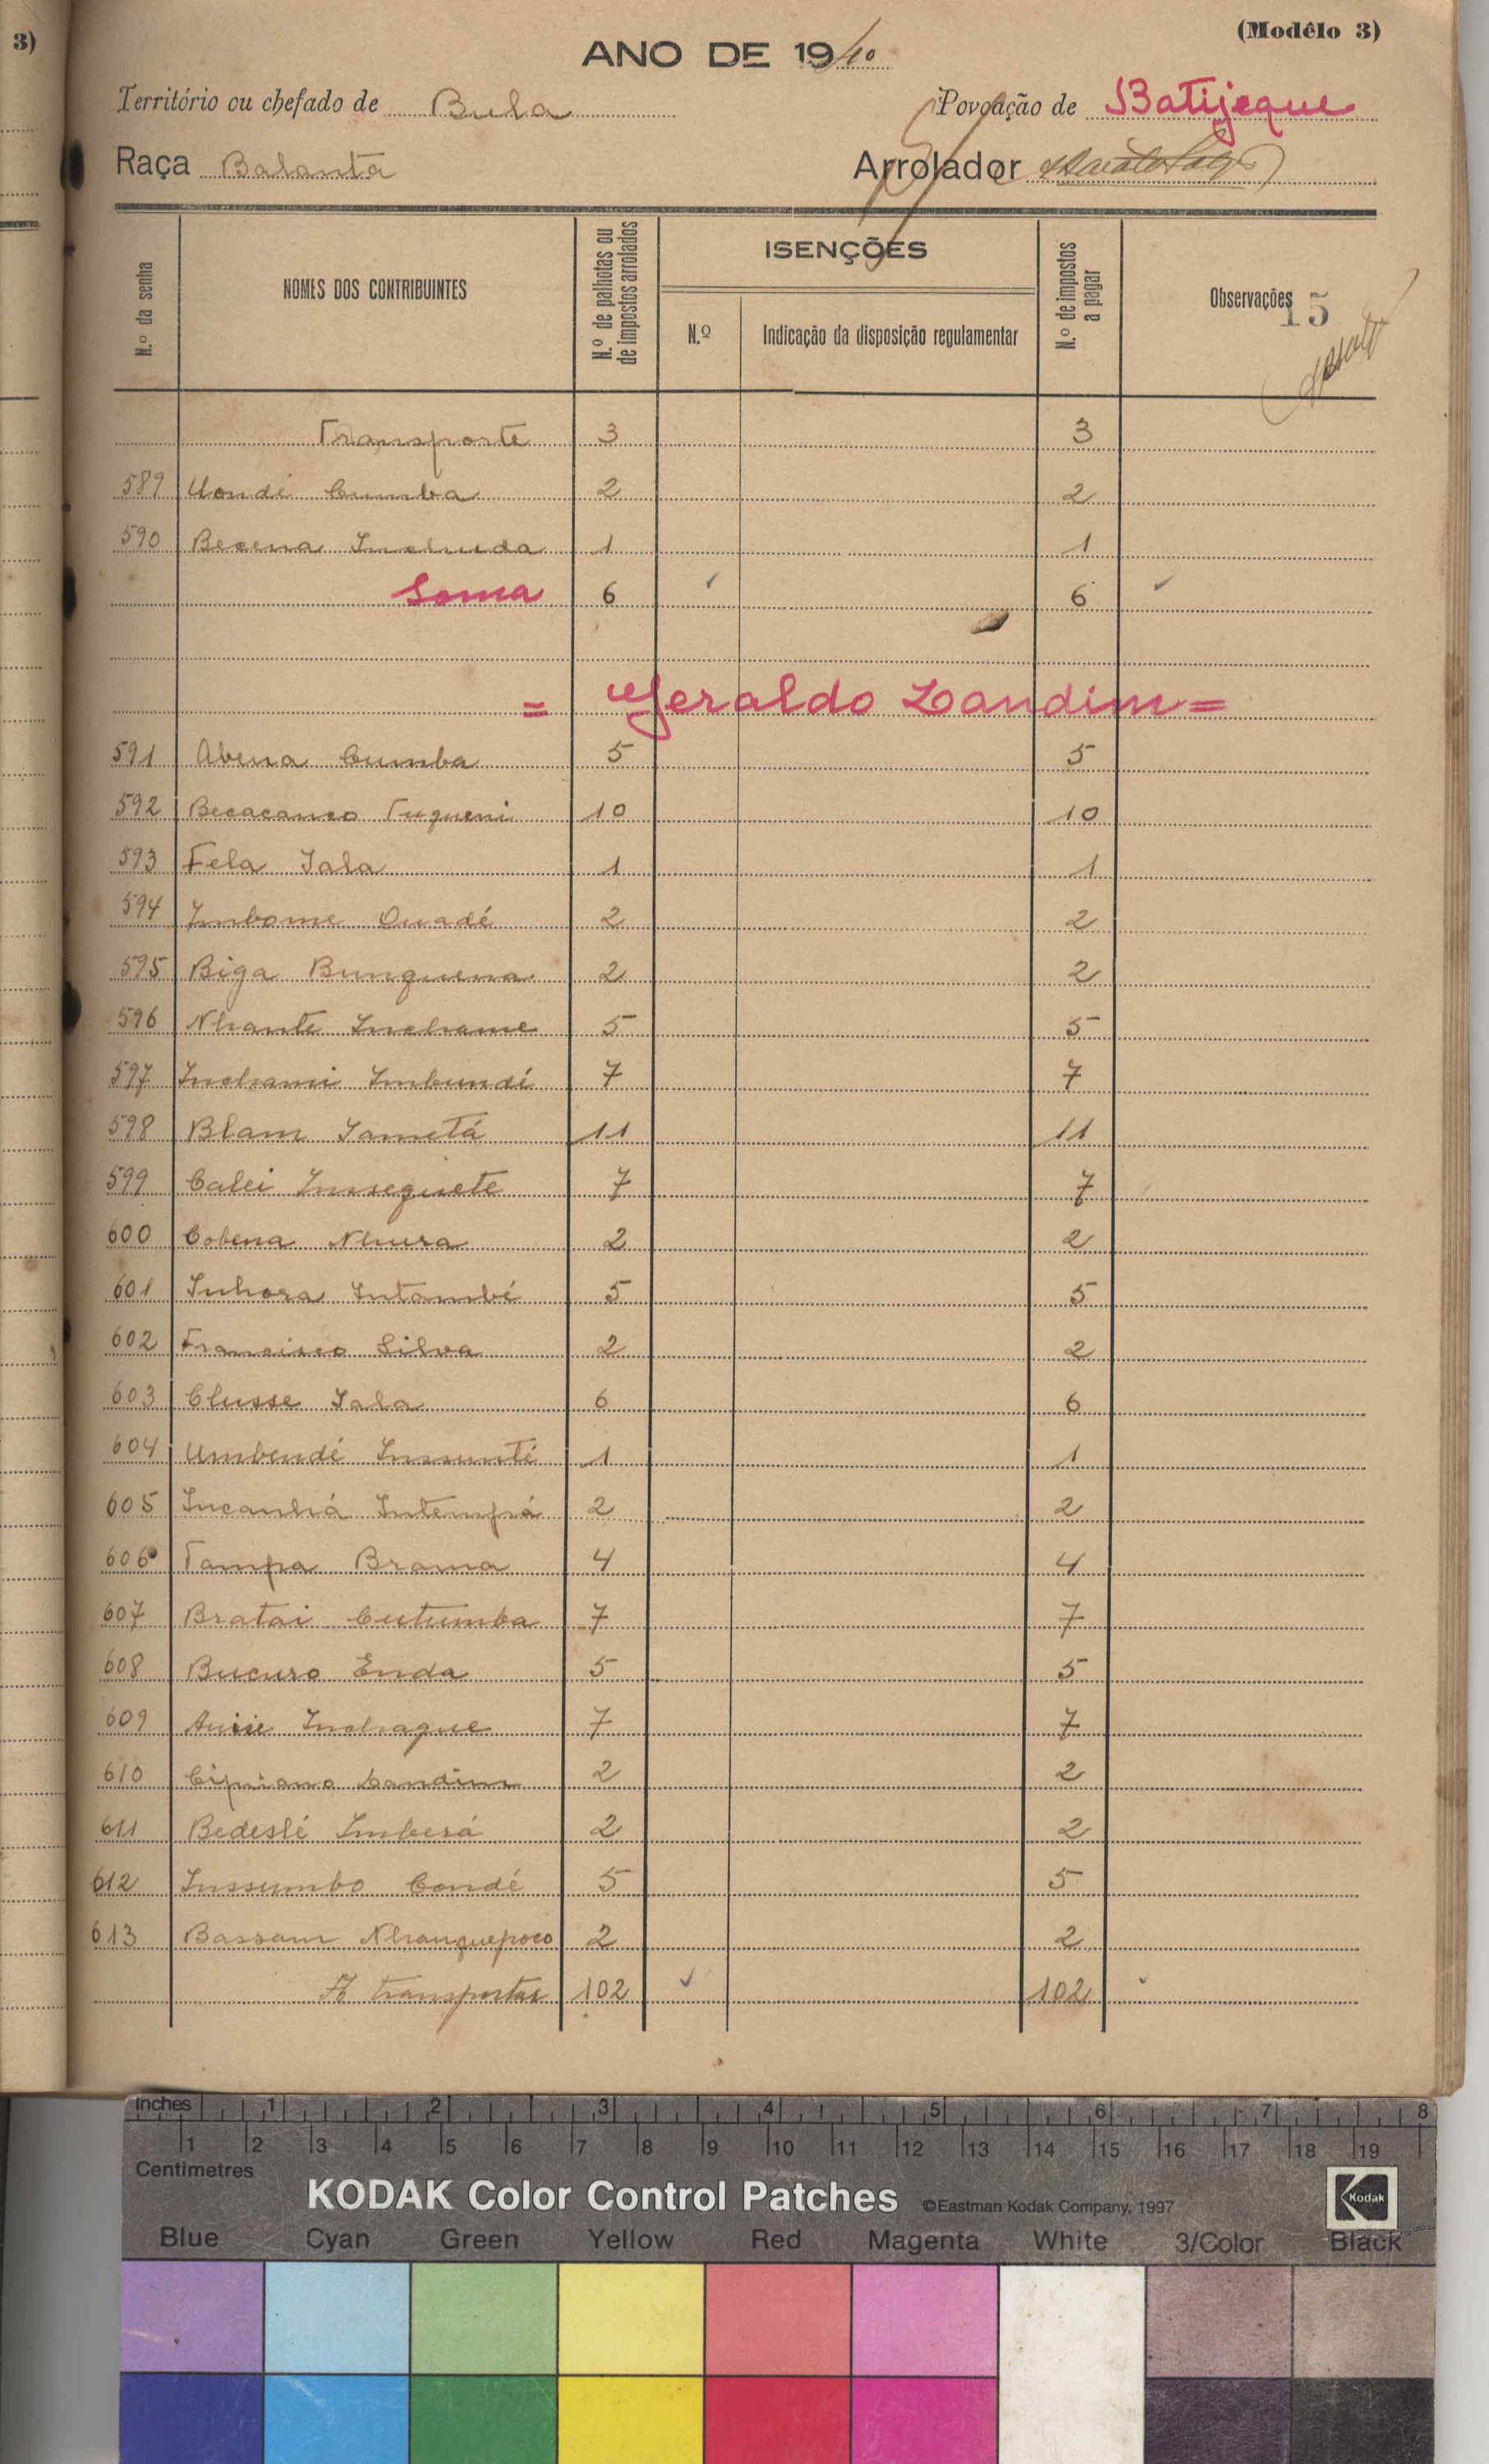 3)
(Modêlo 3)
ANO DE 1940
Território ou chefado de Bula Povoação de Batijeque
Raça Balanta Arrolador
N.º da senha NOMES DOS CONTRIBUINTES N.º de palhotas ou de impostos arrolados ISENÇÕES N.º Indicação da disposição regulamentar N.º de impostos a pagar Observações 15
Transporte 3 3
589 Uondé Cumba 2 2
590 Becena Inchuda 1 1
Soma 6 6
= Geraldo Landim =
591 Abena Cumba 5 5
592 Becacanco Tugueni 10 10
593 Fela Iala 1 1
594 Imbome Ouadé 2 2
595 Biga Bunguena 2 2
596 Nhante Inchame 5 5
597 Inchami Imbundé 7 7
598 Blam Iametá 11 11
599 Calei Inseguete 7 7
600 Cobena Nhura 2 2
601 Inhora Intambé 5 5
602 Francisco Silva 2 2
603 Clusse Iala 6 6
604 Umbendé Insunté 1 1
605 Incanhá Intempá 2 2
606 Tampa Brama 4 4
607 Bratai Cutumba 7 7
608 Bucuro Enda 5 5
609 Inchague 7 7
610 Cipriano Landim 2 2
611 Bedeslé Imberá 2 2
612 Inssumbo Condé 5 5
613 Bassam Nhanguepoco 2 2
A transportar 102 102
Inches 1 2 3 4 5 6 7 8
1 2 3 4 5 6 7 8 9 10 11 12 13 14 15 16 17 18 19
Centimetres
KODAK Color Control Patches ©Eastman Kodak Company, 1997 Kodak
Blue Cyan Green Yellow Red Magenta White 3/Color Black